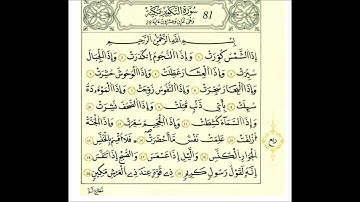 سُورَةُ التَّكْوِيرِ مَكِّيَّة 81
بِسْمِ اللَّهِ الرَّحْمَنِ الرَّحِيمِ
إِذَا الشَّمْسُ كُوِّرَتْ وَإِذَا النُّجُومُ انكَدَرَتْ وَإِذَا الْجِبَالُ
سُيِّرَتْ وَإِذَا الْعِشَارُ عُطِّلَتْ وَإِذَا الْوُحُوشُ حُشِرَتْ
وَإِذَا الْبِحَارُ سُجِّرَتْ وَإِذَا النُّفُوسُ زُوِّجَتْ وَإِذَا الْمَوْءُودَةُ
سُئِلَتْ بِأَيِّ ذَنبٍ قُتِلَتْ وَإِذَا الصُّحُفُ نُشِرَتْ
وَإِذَا السَّمَاءُ كُشِطَتْ وَإِذَا الْجَحِيمُ سُعِّرَتْ وَإِذَا الْجَنَّةُ
أُزْلِفَتْ عَلِمَتْ نَفْسٌ مَا أَحْضَرَتْ فَلَا أُقْسِمُ بِالْخُنَّسِ
الْجَوَارِ الْكُنَّسِ وَاللَّيْلِ إِذَا عَسْعَسَ وَالصُّبْحِ إِذَا تَنَفَّسَ
إِنَّهُ لَقَوْلُ رَسُولٍ كَرِيمٍ ذِي قُوَّةٍ عِندَ ذِي الْعَرْشِ مَكِينٍ
مُطَاعٍ ثَمَّ